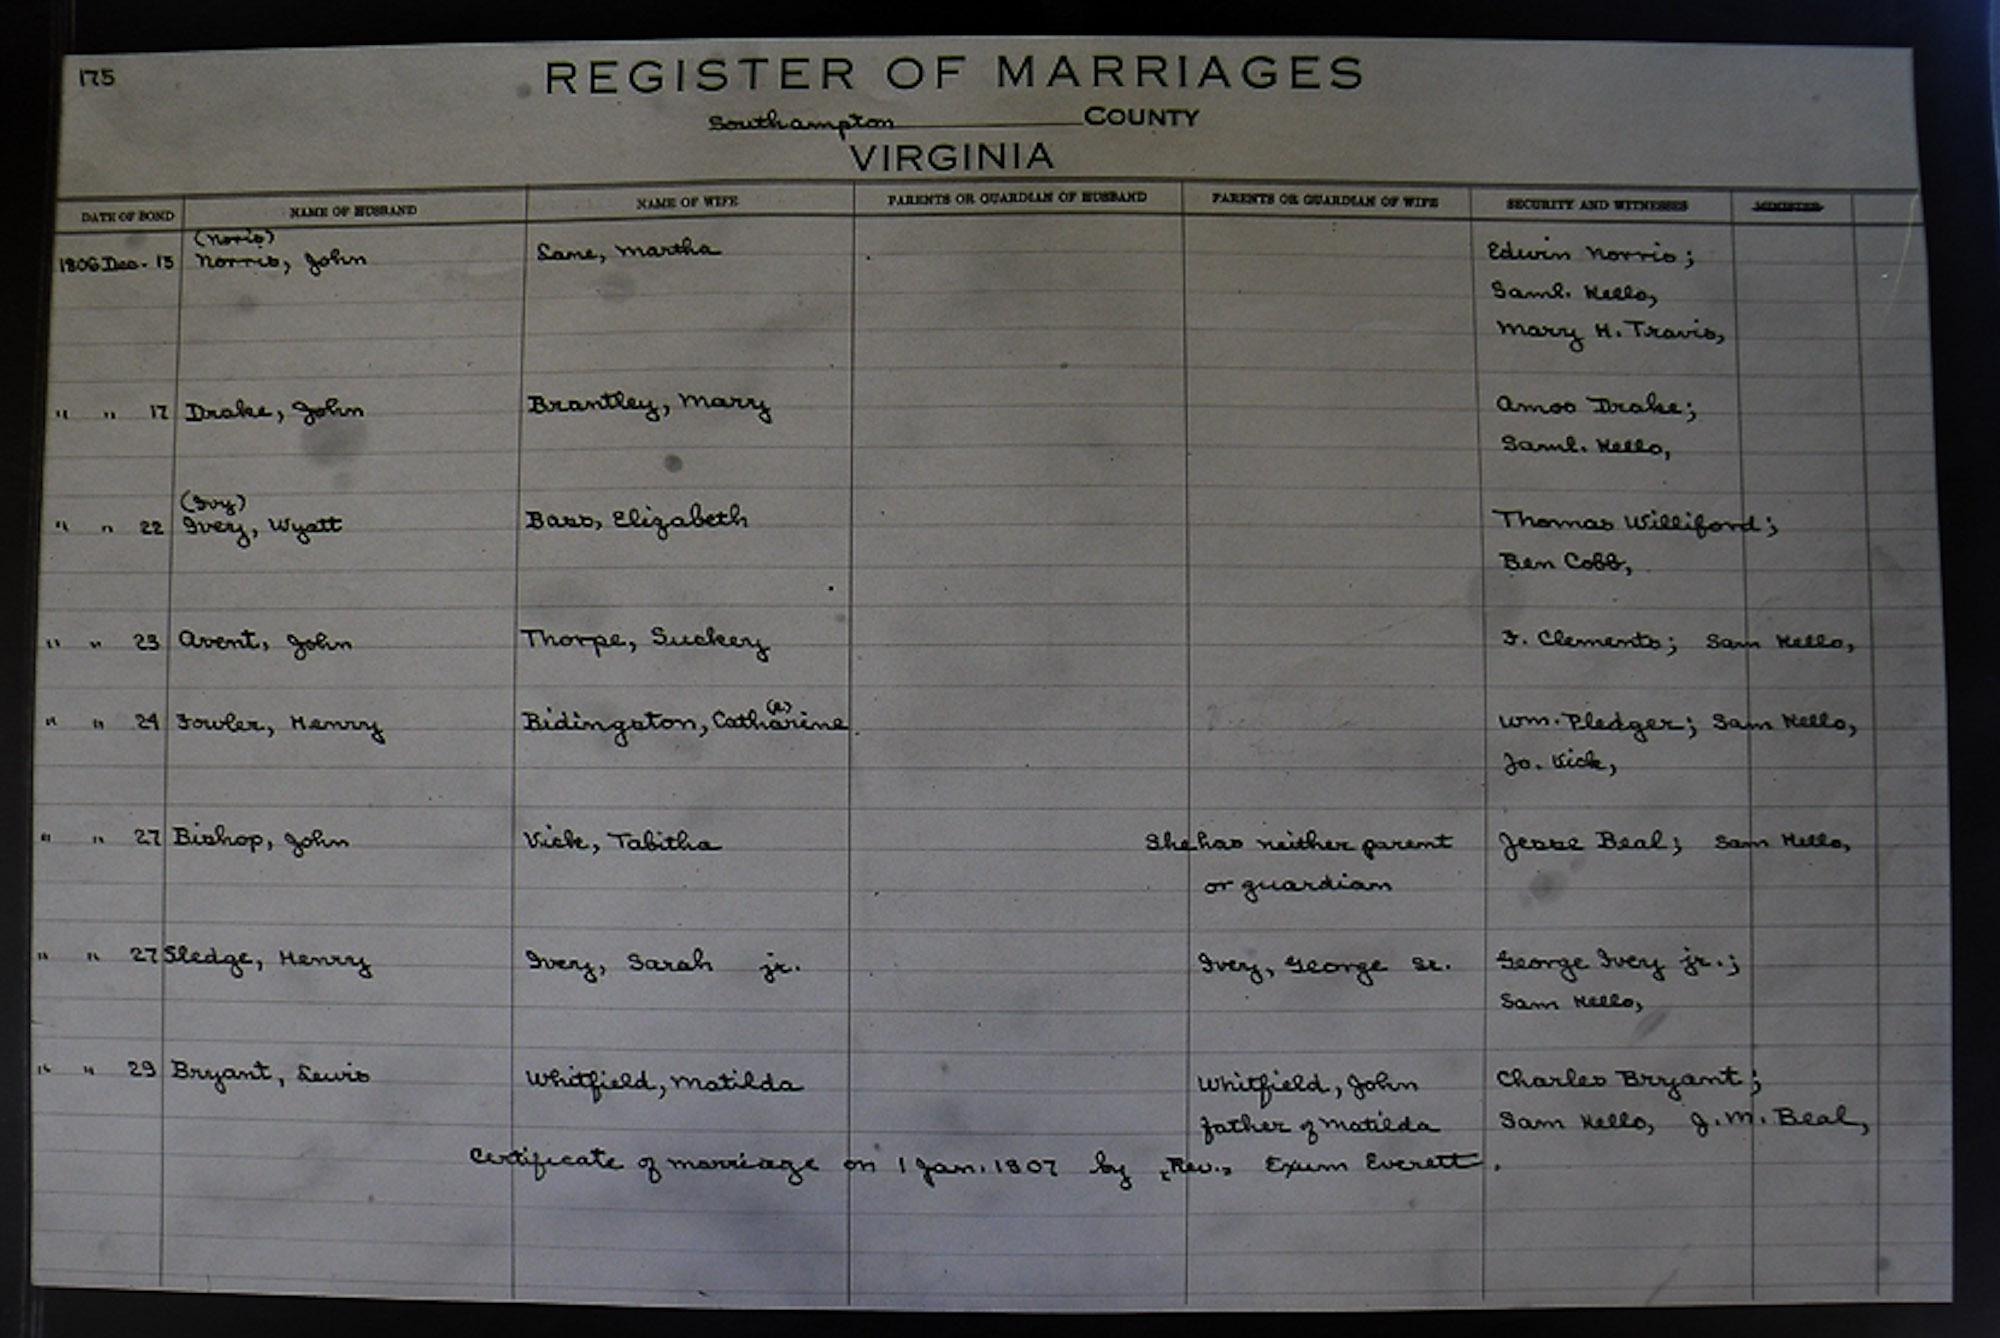 175
REGISTER OF MARRIAGES
Southampton COUNTY
VIRGINIA
DATE OF BOND NAME OF HUSBAND NAME OF WIFE PARENTS OR GUARDIAN OF HUSBAND PARENTS OR GUARDIAN OF WIFE SECURITY AND WITNESSES MINISTER
(Noris)
1806 Dec. 15 Norris, John Lane, Martha Edwin Norris;
Saml. Kello,
Mary H. Travis,
" " 17 Drake, John Brantley, Mary Amos Drake;
Saml. Kello,
(Ivy)
" " 22 Ivey, Wyatt Bass, Elizabeth Thomas Williford;
Ben Cobb,
" " 23 Avent, John Thorpe, Suckey F. Clements; Sam Kello,
(e)
" " 24 Fowler, Henry Bidingston, Catharine Wm. Pledger; Sam Kello,
Jo. Vick,
" " 27 Bishop, John Vick, Tabitha She has neither parent Jesse Beal; Sam Kello,
or guardian
" " 27 Sledge, Henry Ivey, Sarah jr. Ivey, George Sr. George Ivey jr.;
Sam Kello,
" " 29 Bryant, Lewis Whitfield, Matilda Whitfield, John Charles Bryant;
father of Matilda Sam Kello, J. M. Beal,
Certificate of marriage on 1 Jan. 1807 by "Rev." Exum Everett.